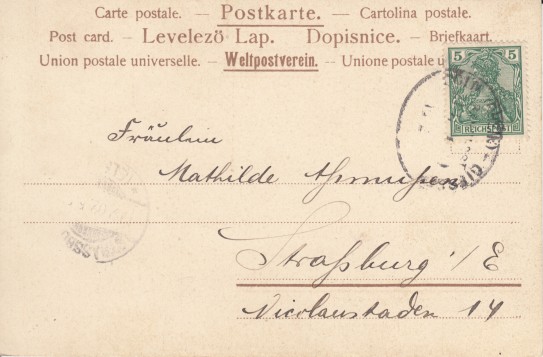 Carte postale. — Postkarte. — Cartolina postale.
Post card. — Levelezö Lap. Dopisnice. — Briefkaart.
Union postale universelle. — Weltpostverein. — Unione postale u
5 5
REICHSPOST
Fräulein
Mathilde
Straßburg i/E
Nicolausstaden 14